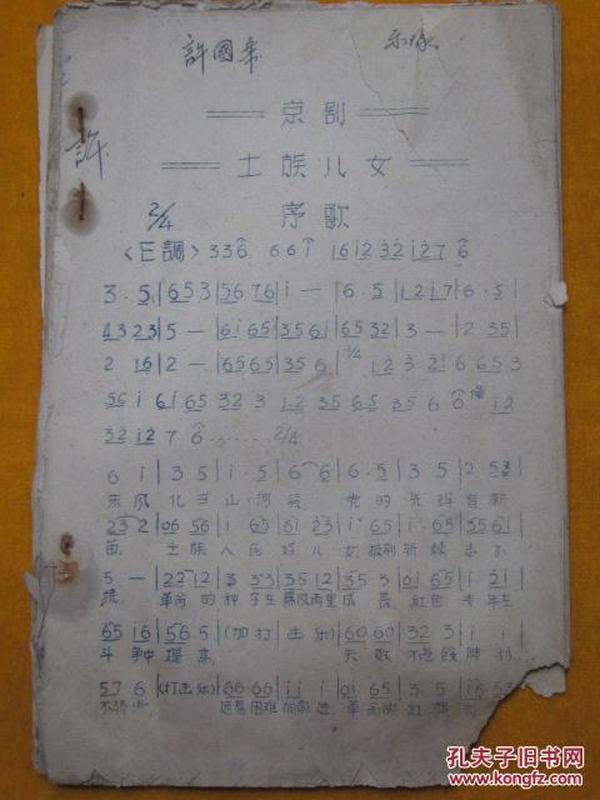 許國華
許
京剧
土族儿女
2/4 序歌
<E調> 3 3 6 6 6 i 1 6 i 2 3 2 i 2 7 6
3 . 5 | 6 5 3 | 5 6 7 6 | i — | 6 . 5 | 1 2 1 7 | 6 . 5 |
4 3 2 3 | 5 — | 6 i 6 5 | 3 5 6 i | 6 5 3 2 | 3 — | 2 3 5 |
2 1 6 | 2 — | 6 5 6 5 | 3 5 6 | 1/4 1 2 3 2 1 6 6 5 3
5 6 i 6 i 6 5 3 2 3 1 2 3 5 6 5 3 5 6 6 慢 i 2
3 2 i 2 7 6 . . . . . 2/4
6 i | 3 5 | i . 5 | 6 6 | 6 . 5 | 3 5 | 2 5 3 |
东风化雨山河笑 党的光辉育新
2 3 2 | 0 6 5 6 | i 6 5 | 6 i 2 3 | i 6 5 | i 6 5 | 3 5 6 i |
苗 土族人民好儿女
5 — | 2 2 1 2 | 3 3 3 | 3 5 1 2 | 3 5 3 | 0 i 6 5 | i 2 i |
革命的种子在暴风雨里成長 紅色青年在
6 5 i 6 | 5 6 5 | (加打 击乐) | 6 0 6 0 | 3 2 3 | i i |
斗争中提高
5 7 6 | (打击乐) | 6 6 6 6 | i i i | 0 i 6 5 | 3 5 | i 6 5 3
迎着困难向前进 革命的紅旗
孔夫子旧书网
www.kongfz.com